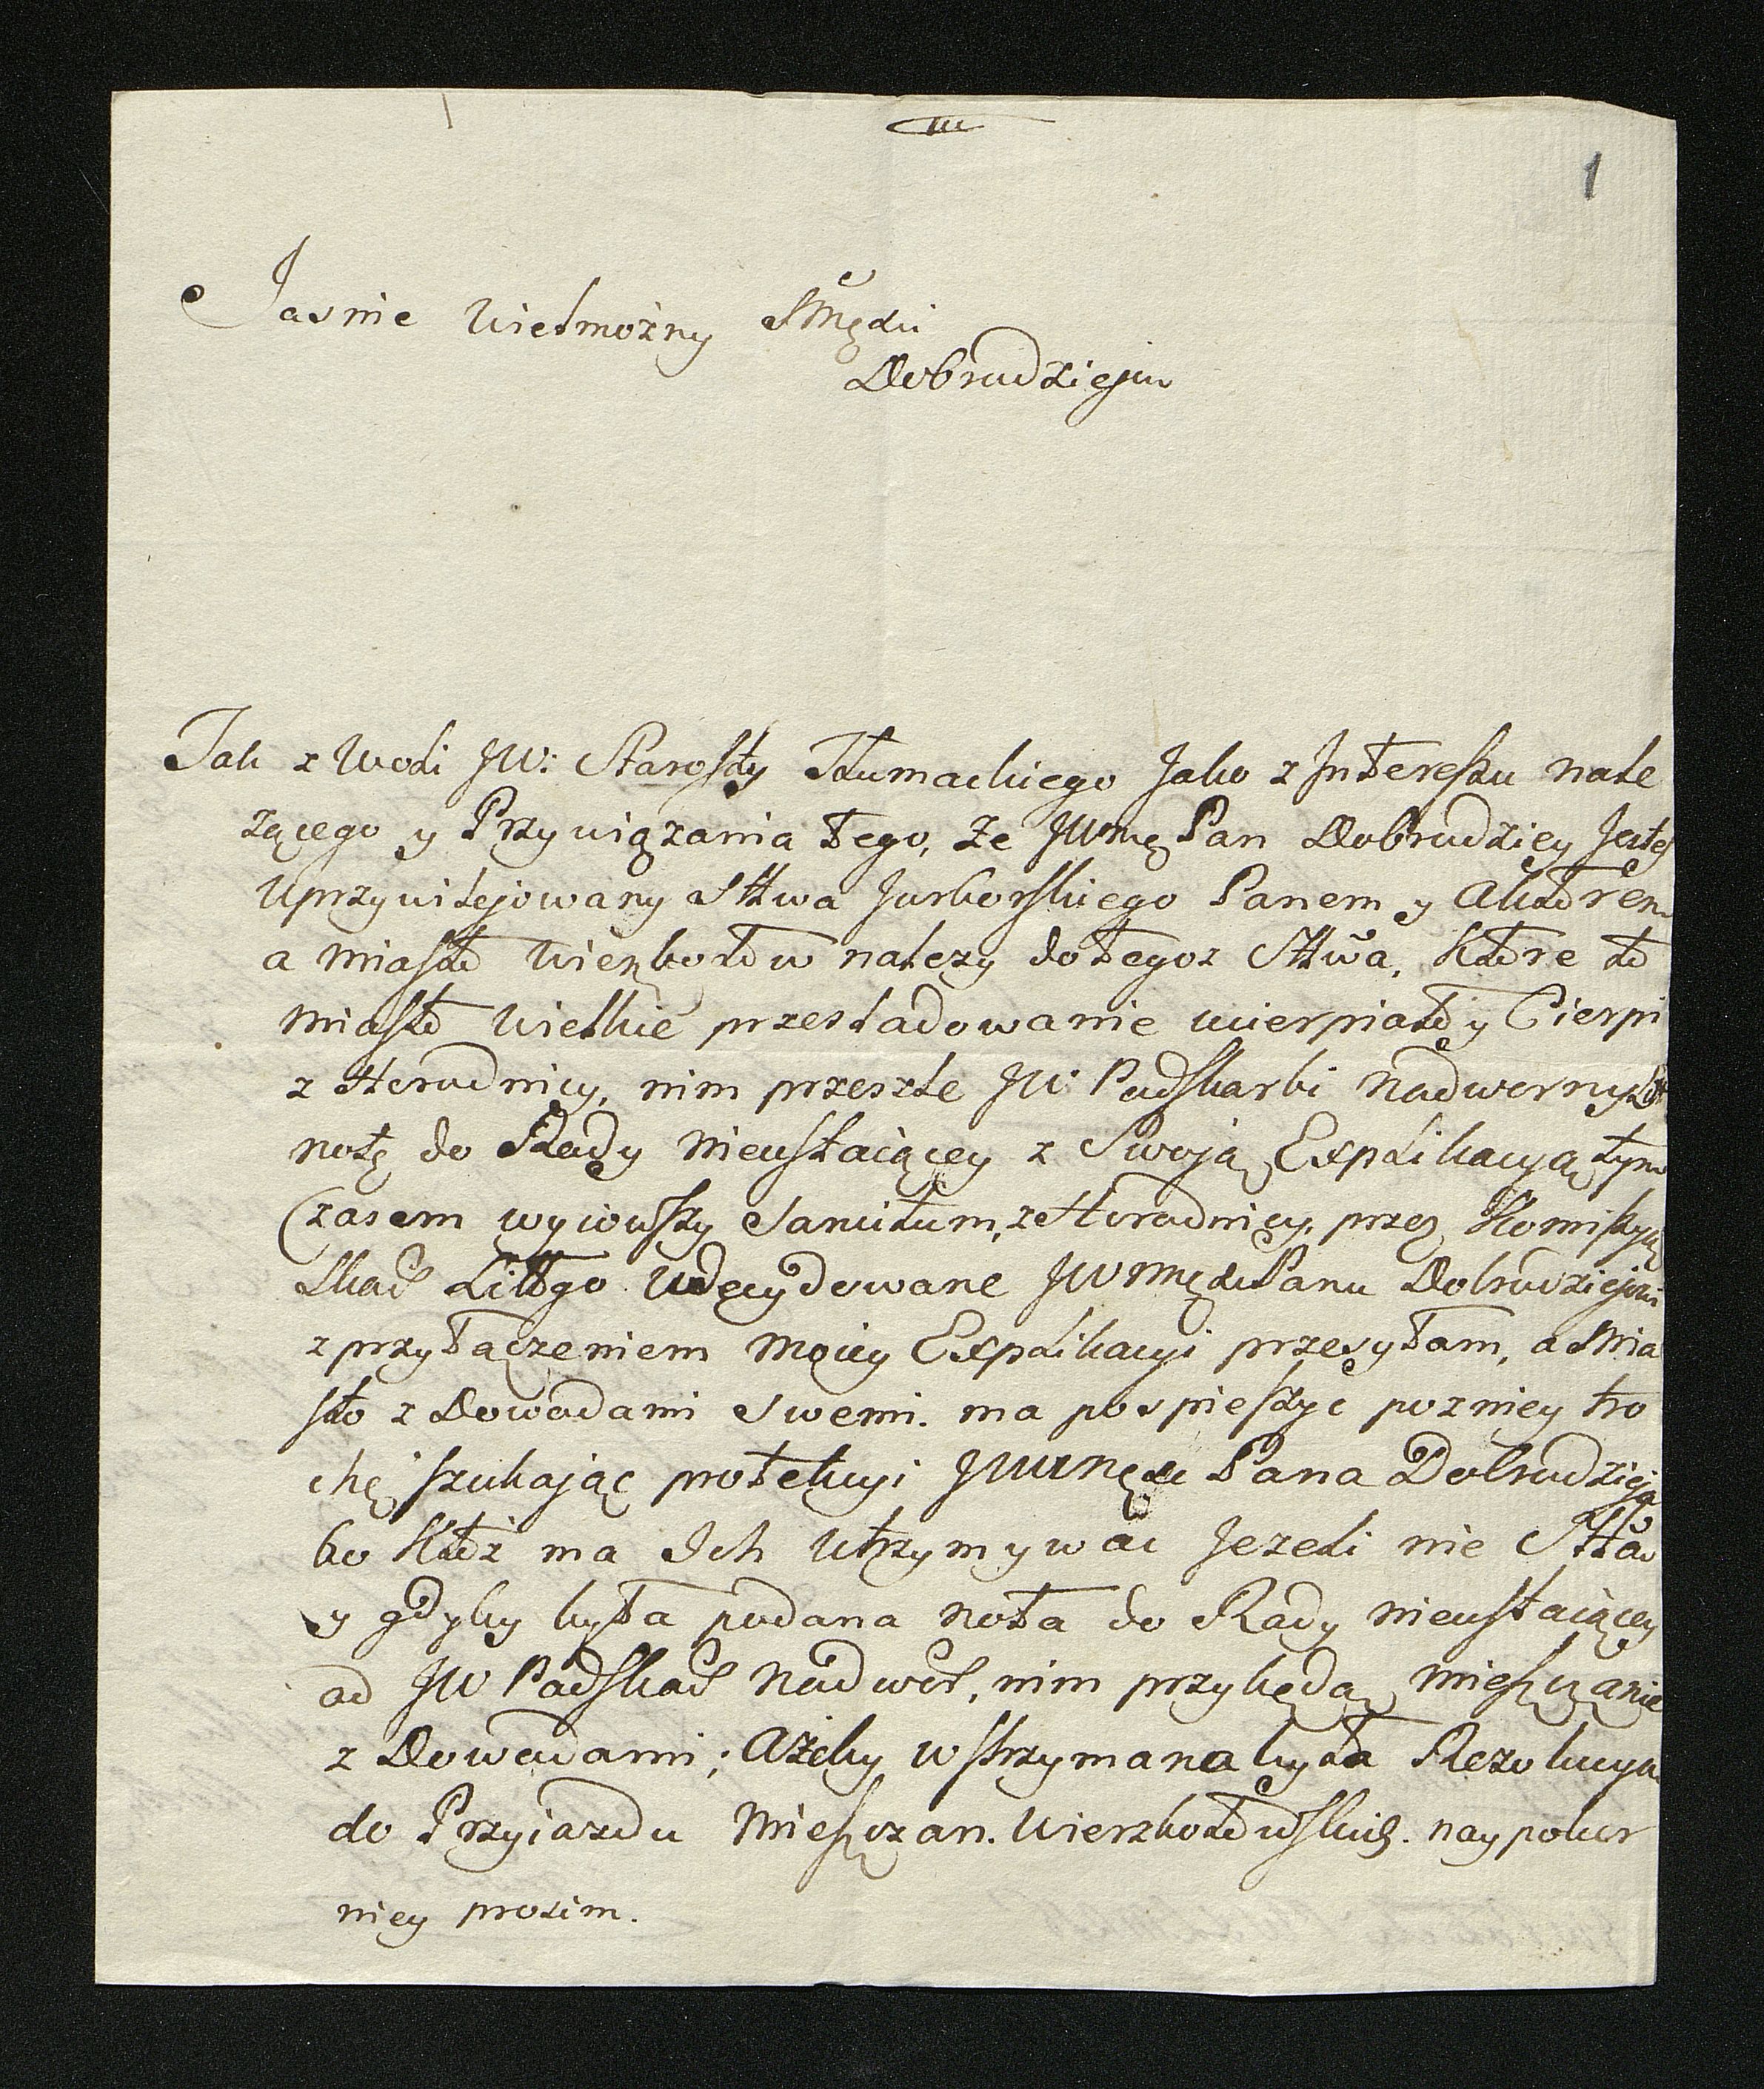 1
Jasnie Wielmożny
Dobrodzieju
Jak z Woli JW: Starosty Tłumackiego Jako z Interessu nale
zącego y Przywiązania tego, że JWmę Pan Dobrodziey Jesteś
Uprzywilejowany Sttwa Jurborskiego Panem y Aktorem
a Miasto Wierzbołów nalezy do tegoz Sttwa, Które to
Miasto Wielkie przesladowanie ucierpiało y Cierpi
z Horodnicy, nim przeszle JW Podskarbi Nadworny Litt
notę do Rady Nieustaiącey z Swoją Explikacyą tym
Czasem wywiozszy Sancitum, z Horodnicy, przez Komissyą
Skar Litt̃go Udecydowane JWmę Panu Dobrodziejowi
z przyłączeniem Moiey Explikacyi przesyłam, a Mia
sto z Dowodami Swemi. ma pospieszyc pozniey tro
chę szukając protekcyi JWmę Pana Dobrodzieja
bo Któż ma Ich Utrzymywać Jezeli nie Stta
y gdyby była podana nota do Rady nieustaiącey
od JW Podskar Nadwor, nim przybędą Mieszczanie
z Dowodami; Ażeby wstrzymana była Rezolucya
do Przyiazdu Mieszczan. Wierzbołowskich. naypokor
niey prosim.